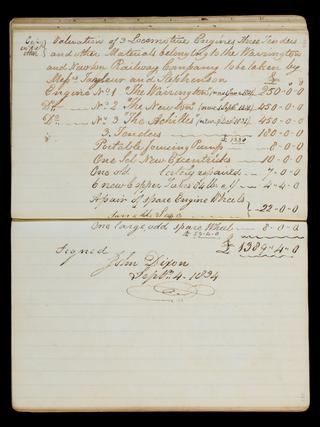 Valuation of 3 Locomotive Engines Three Tenders
and other Materials belonging to the Warrington
and Newton Railway Company to be taken by
Messrs Tayleur and Stephenson £
Engine No. 1 "The Warrington" 250-0-0
Do. No. 2 "The Newton" 450-0-0
Do. No. 3 "The Achilles" 450-0-0
3 Tenders 180-0-0
£ 1330
Portable forcing Pump 8-0-0
One Set New Excentricks 10-0-0
One old repaired 7-0-0
6 new Copper Tubes 4-4-0
A pair of spare Engine Wheels
22-0-0
One large odd spare Wheel 8-0-0
£ 59-4-0
£ 1389-4-0
Signed
John Dixon
Septr. 4. 1834